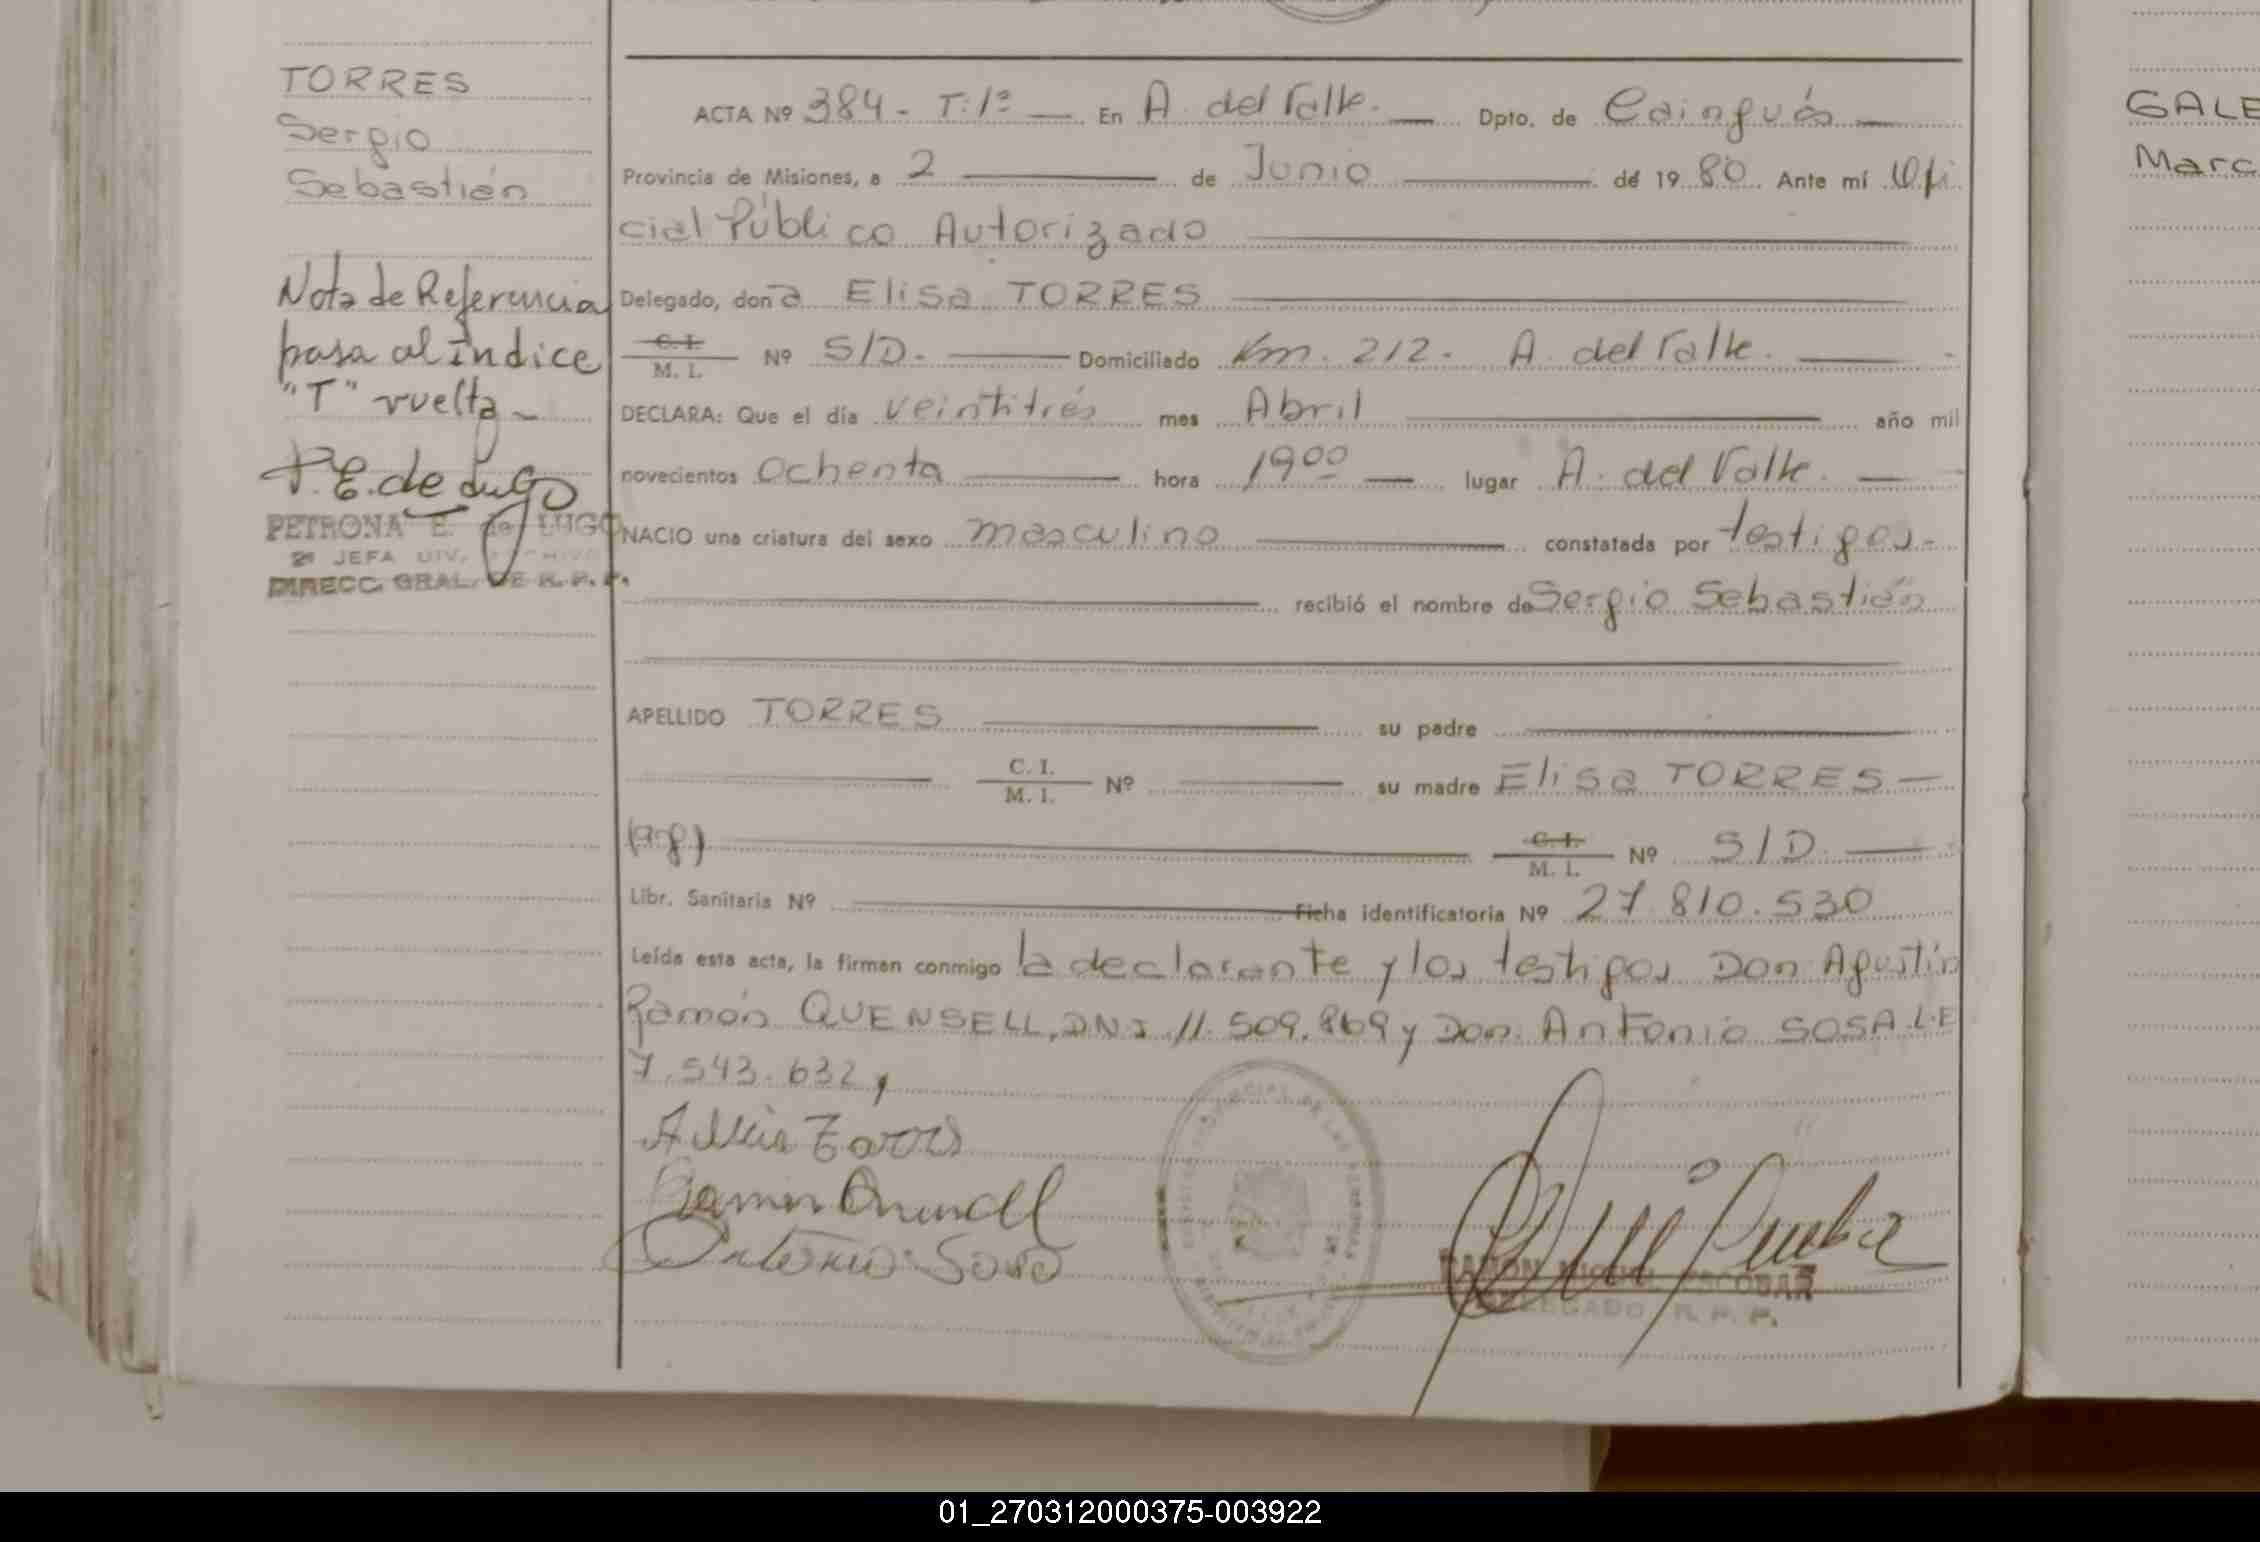 TORRES
Sergio
Sebastián
Nota de Referencia
pasa al índice
"T" vuelta -
P.E. de Lugo
PETRONA E. de LUGO
2ª JEFA DIV. ARCHIVO
DIRECC. GRAL. DE R. P. P.
ACTA Nº 384 - T: 1º — En A. del Valle. — Dpto. de Cainguás —
Provincia de Misiones, a 2 — de Junio — de 19 80 Ante mí Ofi
cial Público Autorizado —
Delegado, don a Elisa TORRES —
C. I.
M. I. Nº S/D. — Domiciliado Km. 212. A. del Valle. —
DECLARA: Que el día veintitrés mes Abril — año mil
novecientos ochenta — hora 19 00 — lugar A. del Valle. —
NACIO una criatura del sexo masculino — constatada por testigos. -
— recibió el nombre de Sergio Sebastián
APELLIDO TORRES — su padre —
— C. I.
M. I. Nº — su madre Elisa TORRES —
(arg) — C. I.
M. I. Nº S/D. —
Libr. Sanitaria Nº — Ficha identificatoria Nº 27.810.530
Leída esta acta, la firman conmigo la declarante y los testigos Don Agustín
Ramón QUENSELL, DNI 11.509.869 y Don Antonio SOSA L.E
7.543.632,
Ramón
Antonio Sosa
RAMON MIGUEL ESCOBAR
DELEGADO R. P. P.
GALE
Marc
01_270312000375-003922